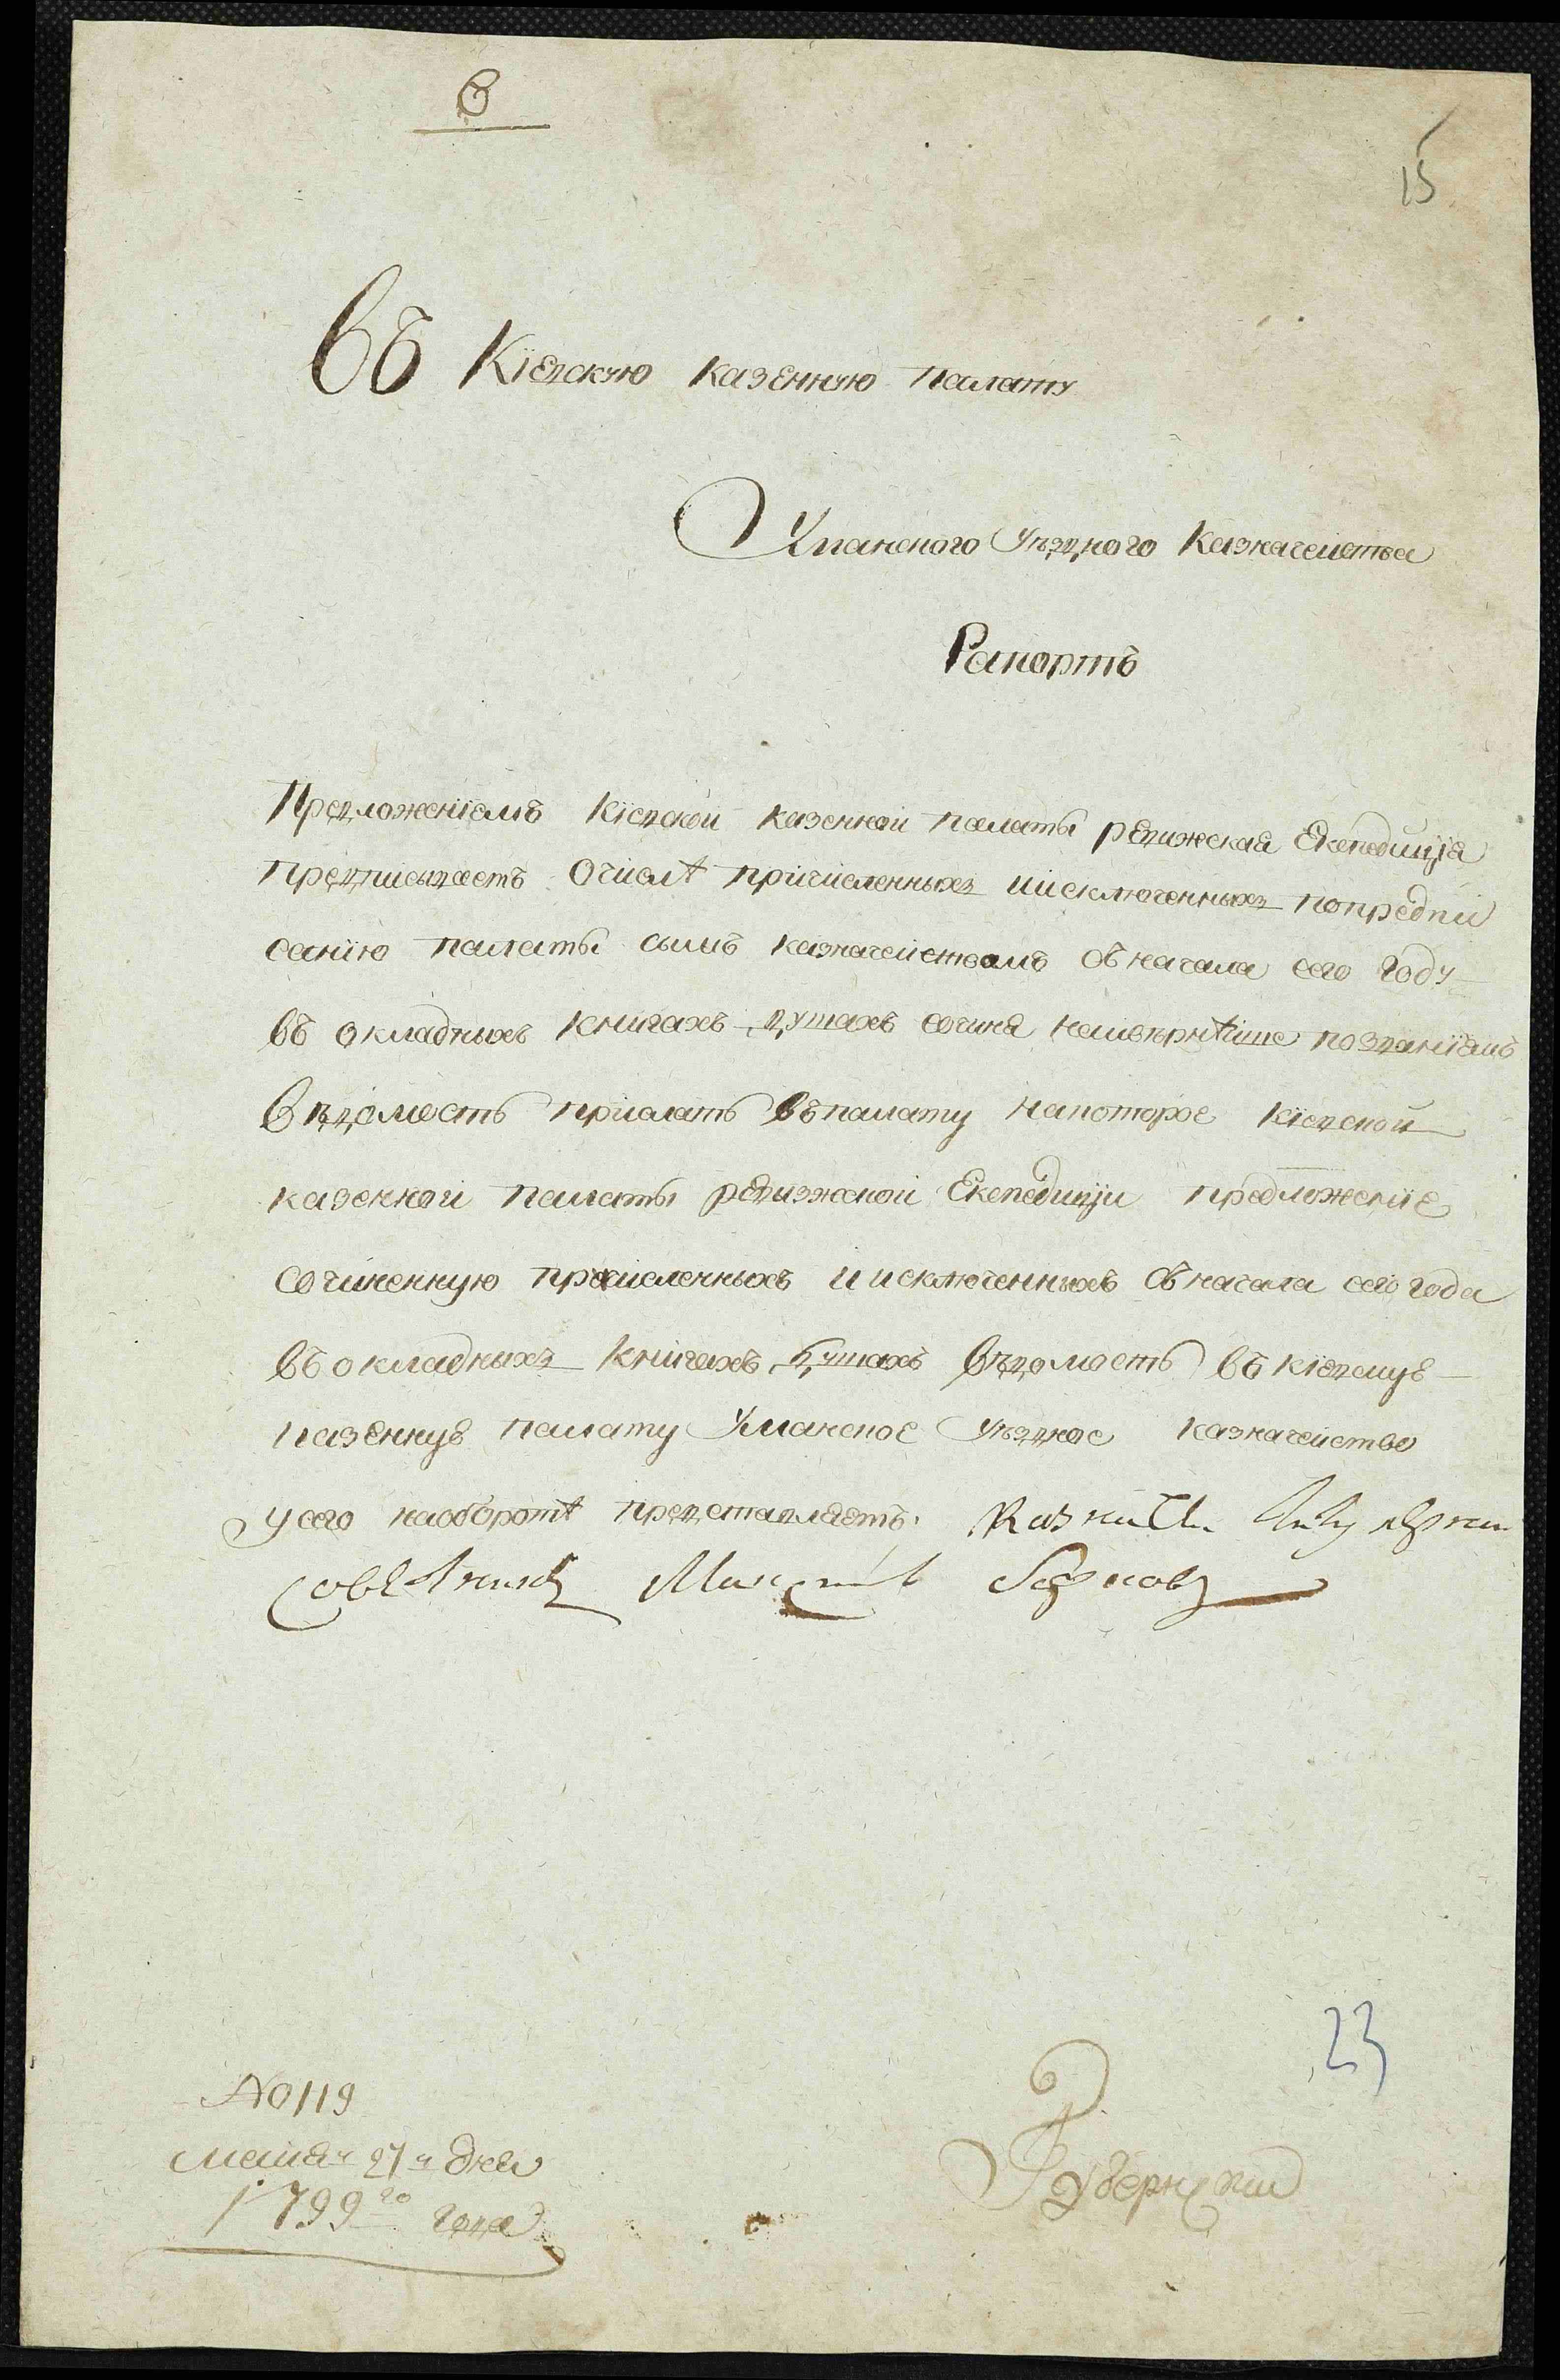 В
15
Въ Кіевскую казенную палату
Уманского уѣздного Казначейства
Рапортъ
Предложеніемъ Кіевской казенной палаты ревижская Експедиція
предписываетъ о числѣ причисленныхъ и исключенныхъ по предпи
санію палаты симъ казначействомъ съ начала сего году
въ окладныхъ книгахъ душахъ сочиня наивернѣише по званіямъ
ведомость прислать въ палату на которое Кіевской
казенной палаты ревизжской Експедиціи предложеніе
сочиненную причисленныхъ и исключенныхъ съ начала сего года
въ окладныхъ книгахъ душахъ ведомость въ кіевскую
казенную палату Уманское уездное казначейство
у сего на оборотѣ представляетъ.
Советникъ
23
No 119
маия 27 дня
1799го года
Губернскии